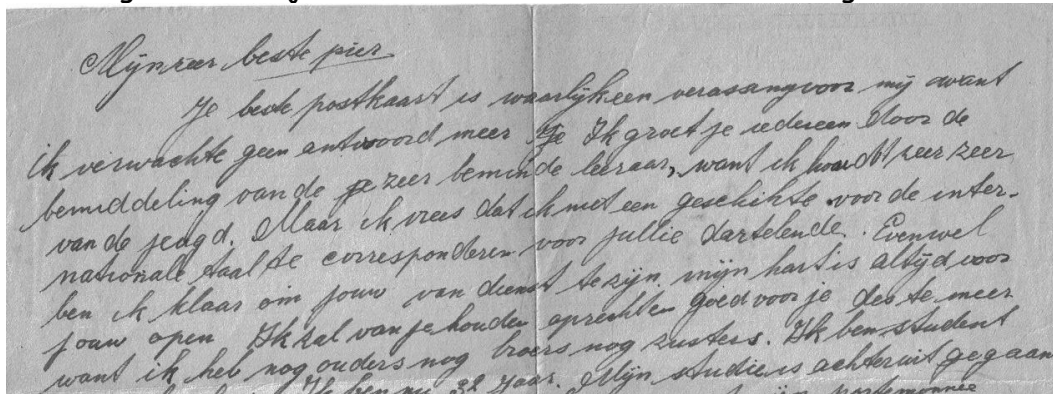 Mijn zeer beste pier
Je beste postkaart is waarlijk een verassing voor mij want
ik verwachte geen antwoord meer Je Ik groet je iedereen door de
bemiddeling van de je zeer beminde leeraar, want ik houdt zeer zeer
van de jeugd. Maar ik vrees dat ik niet een geschikte voor de inter-
nationale taal te corresponderen voor jullie dartelende. Evenwel
ben ik klaar om jouw van dienst te zijn. mijn hart is altijd voor
jouw open Ik zal van je houden oprechten goed voor je des te meer
want ik heb nog ouders nog broers nog zusters. Ik ben student
Ik ben nu jaar. Mijn studie is achteruit gegaan
portemonnee